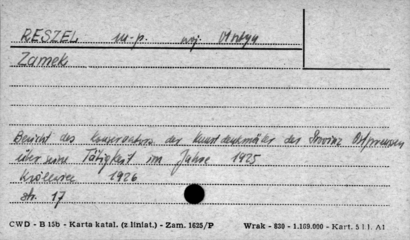 RESZEL m-p. woj. Olsztyn
Zamek
Bericht des Konservators der Kunstdenkmäler der Provinz Ostpreussen
über seine Tätigkeit im Jahre 1925
1926
str. 17
CWD - B 15b - Karta katal. (z liniat.) - Zam. 1625/P Wrak - 830 - 1.169.000 - Kart. 5 kl. A1